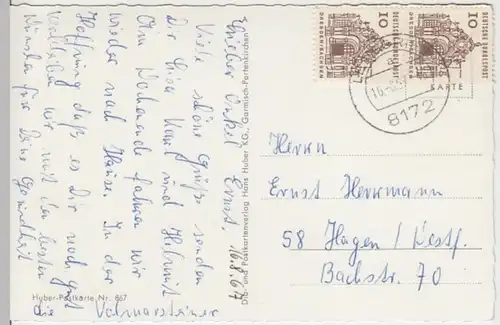 16.8.67
Lieber Onkel Ernst,
Viele schöne Grüße senden
Dir Lisa, Karl und Helmut
Am Wochenende fahren wir
wieder nach Hause. In der
Hoffnung daß es Dir noch gut
verbleiben wir mit den besten
Wünschen für Deine Gesundheit
die Volmarsteiner
Huber-Postkarte Nr. 867
Dia- und Postkartenverlag Hans Huber KG., Garmisch-Partenkirchen
10
DEUTSCHE BUNDESPOST
10
DEUTSCHE BUNDESPOST
KARTE
8172
Herrn
Ernst Herrmann
58 Hagen / Westf.
Bachstr. 70